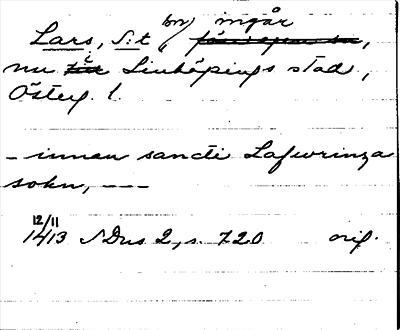 Lars, S:t, sn, ingår
nu Linköpings stad,
Österg. l.
- innan sancti Lafwrinza
sokn, ---
12/11
1413 SDns 2, s. 720 orig.